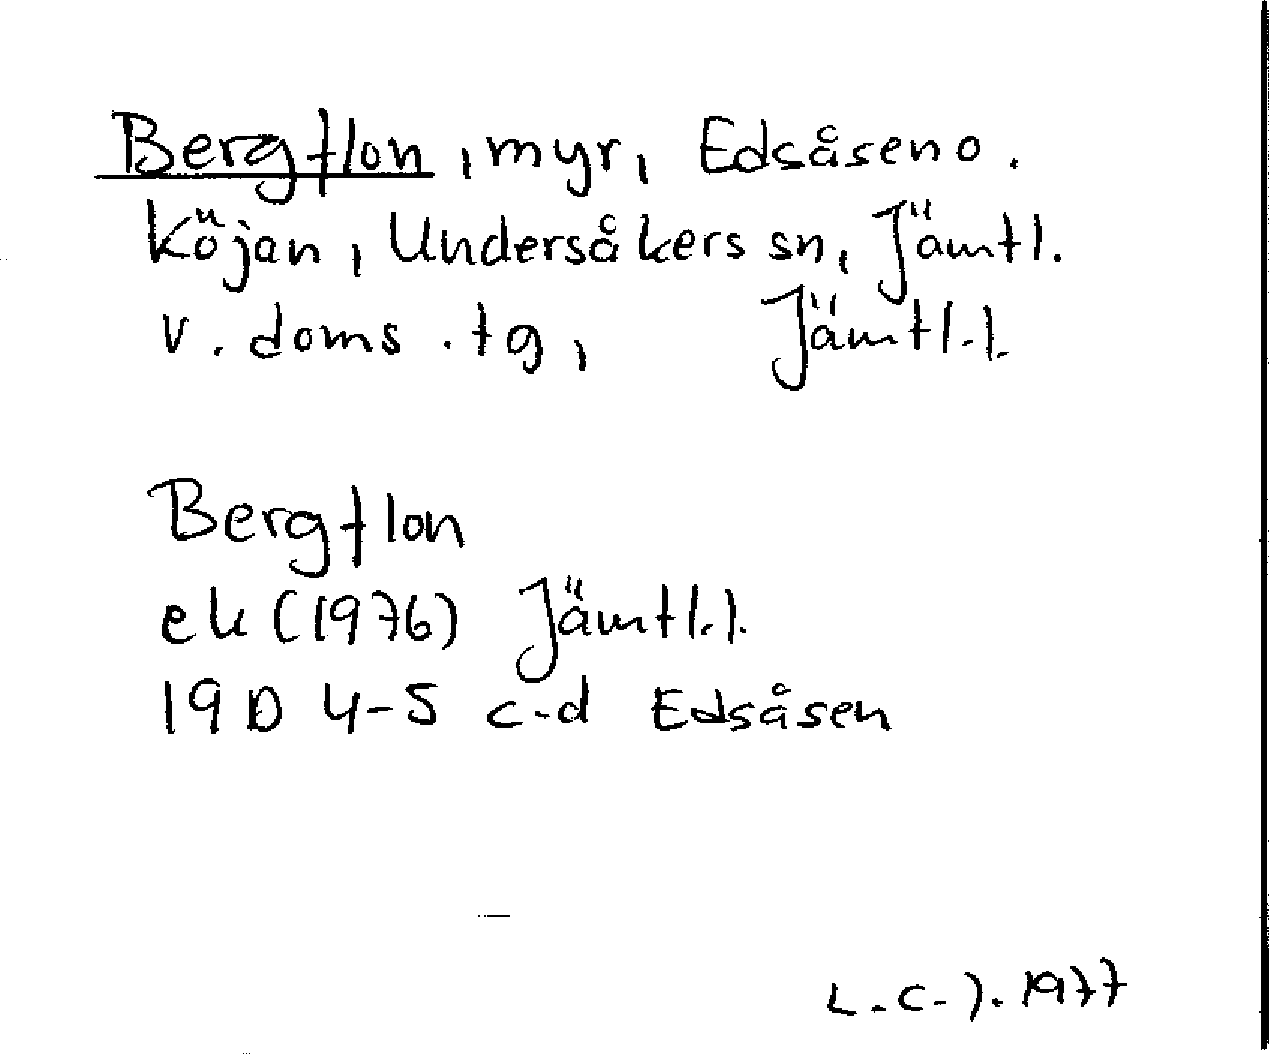 Bergflon, myr, Edsåsen o.
Köjan, Undersåkers sn, Jämtl.
v. doms. tg, Jämtl. l.
Bergflon
ek (1976) Jämtl. l.
19 D 4-5 c-d Edsåsen
L.C.J. 1977